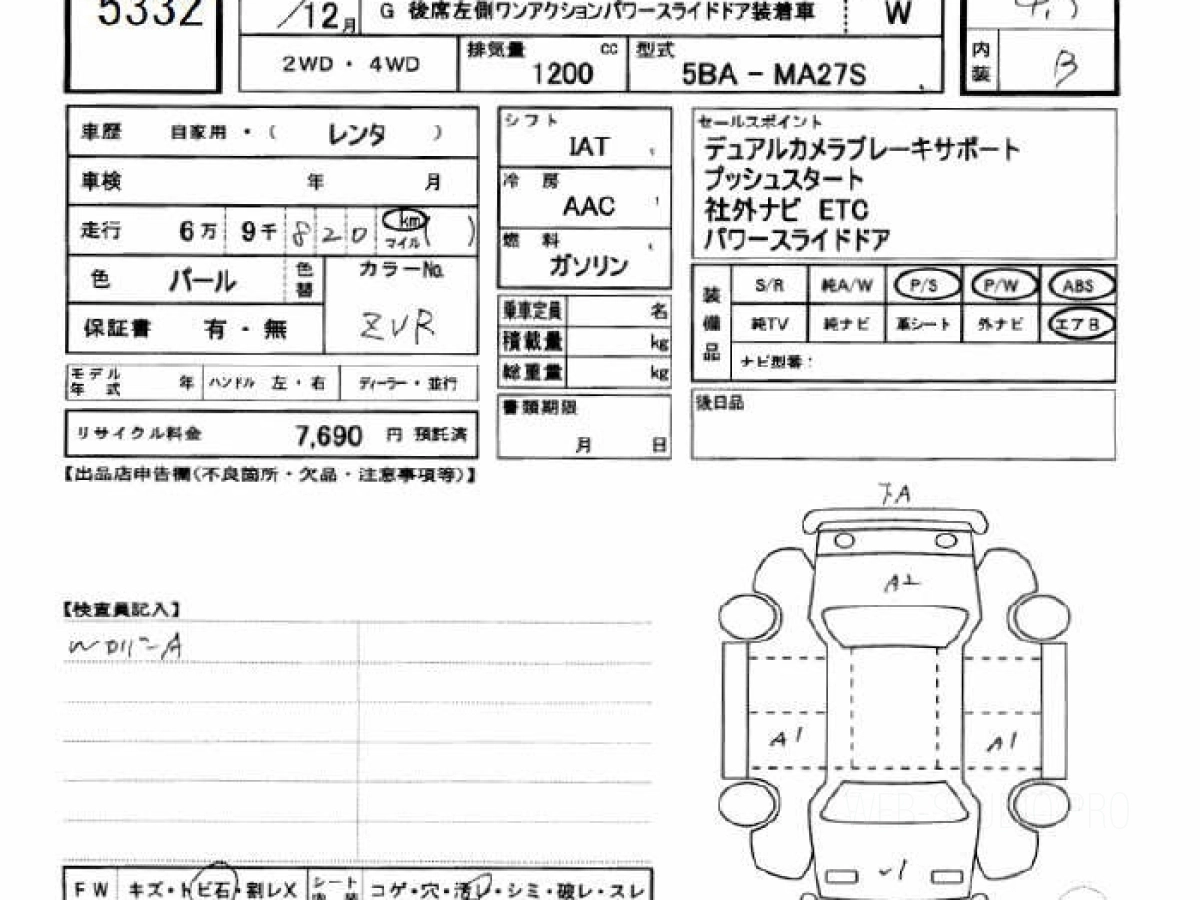 5332
/12月 G 後席左側ワンアクションパワースライドドア装着車 W
2WD・4WD 排気量 1200 cc 型式 5BA-MA27S 内装 B
車歴 自家用・( レンタ )
車検 年 月
走行 6万 9千 820 km マイル ( )
色 パール 色替 カラーNo. ZVR
保証書 有・無
モデル年式 年 ハンドル 左・右 ディーラー・並行
リサイクル料金 7,690 円 預託済
シフト IAT
冷房 AAC
燃料 ガソリン
乗車定員 名
積載量 kg
総重量 kg
書類期限 月 日
セールスポイント
デュアルカメラブレーキサポート
プッシュスタート
社外ナビ ETC
パワースライドドア
装備品 S/R 純A/W P/S P/W ABS
純TV 純ナビ 革シート 外ナビ エアB
ナビ型番:
後日品
【出品店申告欄(不良箇所・欠品・注意事項等)】
A2
【検査員記入】
A1 A1
WEB-STUDIO.PRO
FW キズ・トビ石・割レX シート内装 コゲ・穴・汚レ・シミ・破レ・スレ